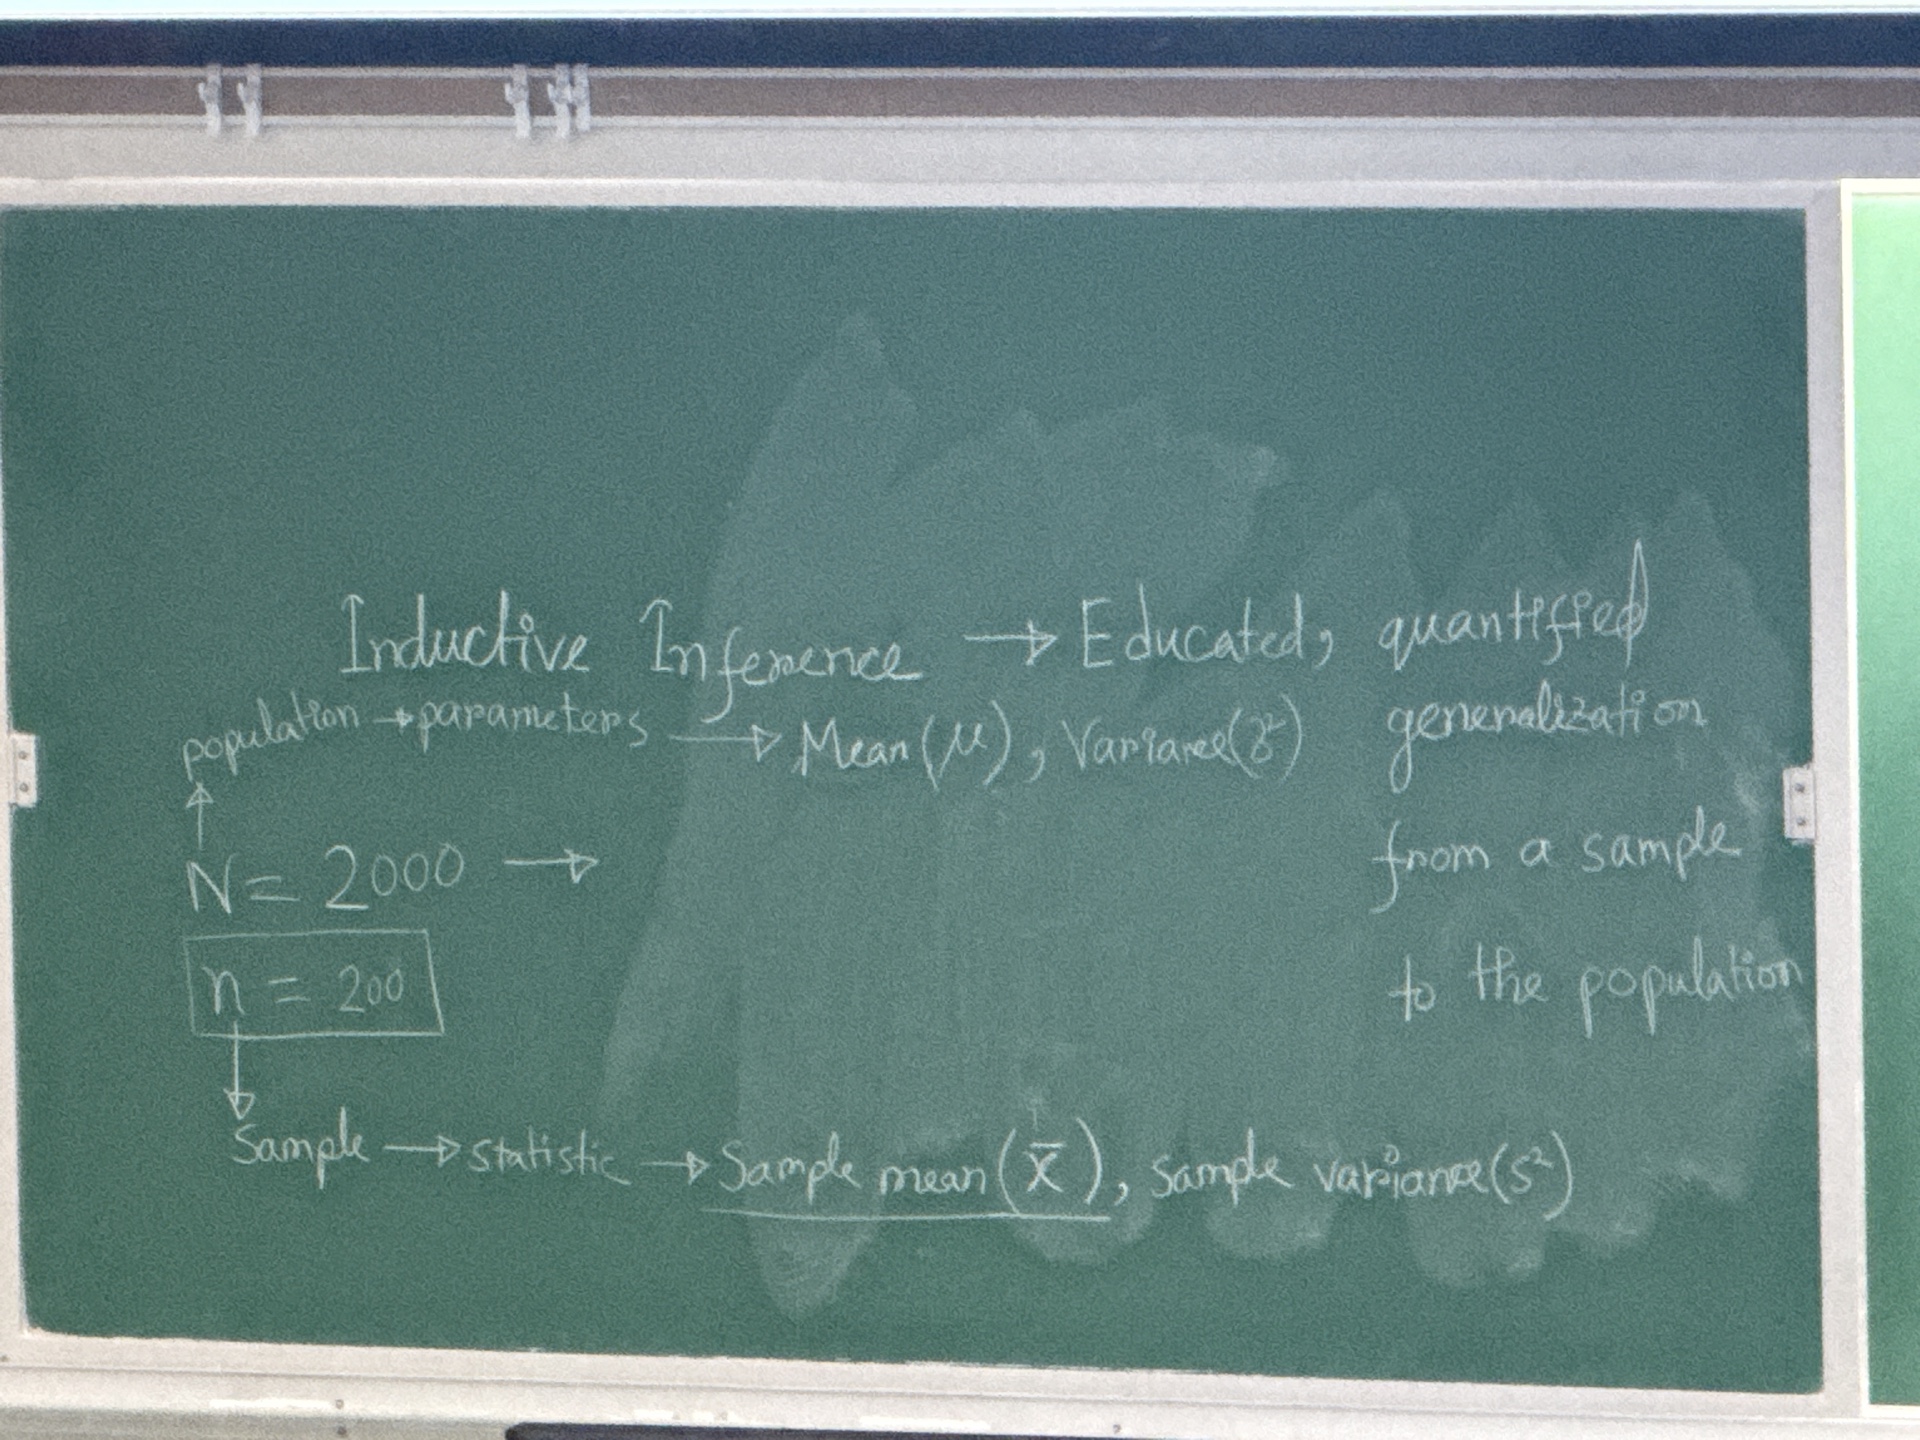 Inductive Inference → Educated, quantified
generalization
from a sample
to the population
population → parameters → Mean (μ), Variance(σ²)
↑
N = 2000 →
n = 200
↓
Sample → statistic → Sample mean (x̄), sample variance (s²)